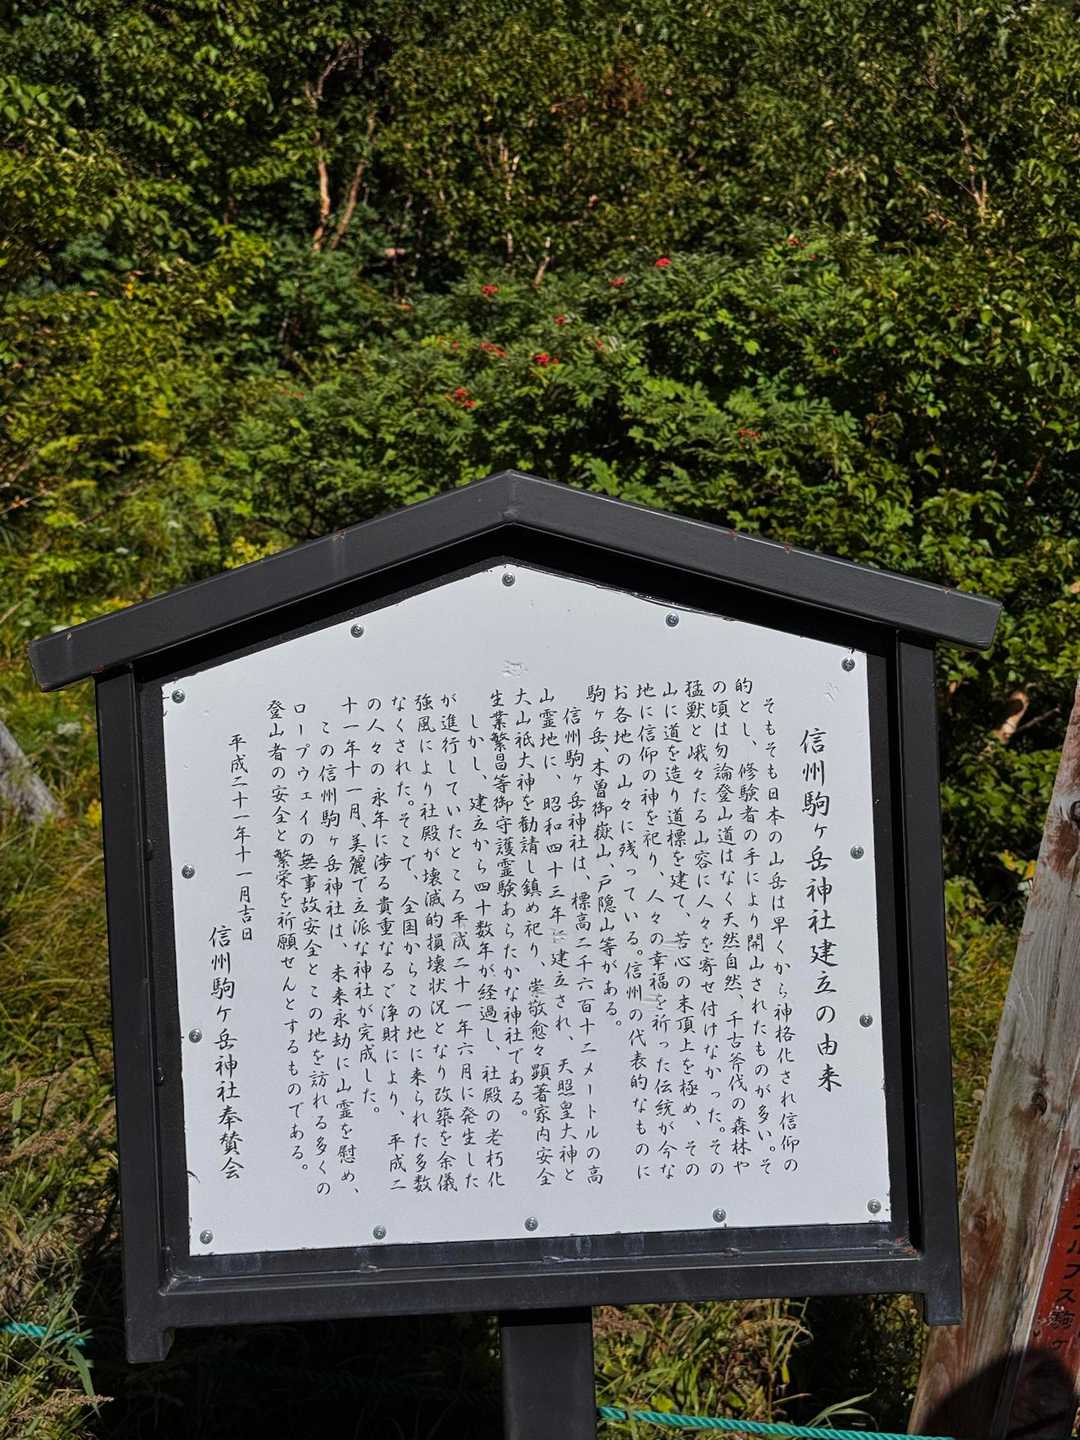 信州駒ヶ岳神社建立の由来
そもそも日本の山岳は早くから神格化され信仰の
的とし、修験者の手により開山されたものが多い。そ
の頃は勿論登山道はなく天然自然、千古斧伐の森林や
猛獣と峨々たる山容に人々を寄せ付けなかった。その
山に道を造り道標を建て、苦心の末頂上を極め、その
地に信仰の神を祀り、人々の幸福を祈った伝統が今な
お各地の山々に残っている。信州の代表的なものに
駒ヶ岳、木曽御嶽山、戸隠山等がある。
信州駒ヶ岳神社は、標高二千六百十二メートルの高
山霊地に、昭和四十三年に建立され、天照皇大神と
大山祇大神を勧請し鎮め祀り、崇敬愈々顕著家内安全
生業繁昌等御守護霊験あらたかな神社である。
しかし、建立から四十数年が経過し、社殿の老朽化
が進行していたところ平成二十一年六月に発生した
強風により社殿が壊滅的損壊状況となり改築を余儀
なくされた。そこで、全国からこの地に来られた多数
の人々の永年に渉る貴重なるご浄財により、平成二
十一年十一月、美麗で立派な神社が完成した。
この信州駒ヶ岳神社は、未来永劫に山霊を慰め、
ロープウェイの無事故安全とこの地を訪れる多くの
登山者の安全と繁栄を祈願せんとするものである。
平成二十一年十一月吉日
信州駒ヶ岳神社奉賛会
ルプス駒ヶ